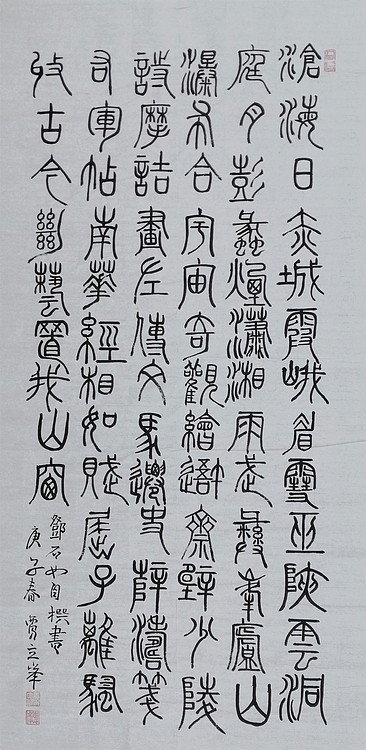 滄海日赤城霞峨眉雪巫峽雲洞
庭月彭蠡煙瀟湘雨武彝峯廬山
瀑布合宇宙奇觀繪吾齋壁少陵
詩摩詰畫左傳文馬遷史薛濤箋
右軍帖南華經相如賦屈子離騷
收古今絕藝置我山窗
鄧石如自撰書
庚子春賈立峯